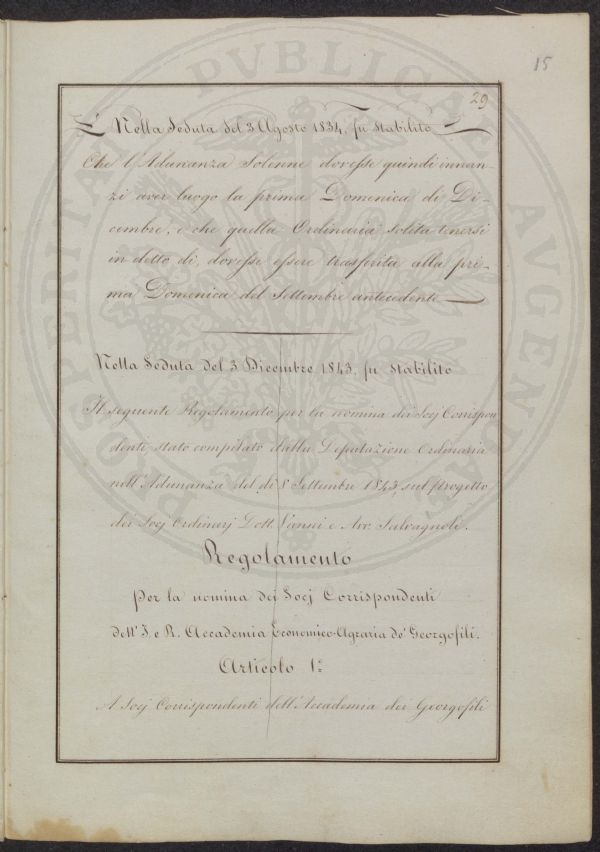 15
29
Nella Seduta del 3 Agosto 1834, fu stabilito
Che l'Adunanza Solenne dovesse quindi innan-
zi aver luogo la prima Domenica di Di-
cembre, e che quella Ordinaria solita tenersi
in detto dì, dovesse essere trasferita alla pri-
ma Domenica del Settembre antecedente
Nella Seduta del 3 Dicembre 1843, fu stabilito
Il seguente Regolamento per la nomina dei Socj Corrispon
denti stato compilato dalla Deputazione Ordinaria
nell'Adunanza del dì 8 Settembre 1843, sul progetto
dei Socj Ordinarj Dott. Vanni e Avv. Salvagnoli.
Regolamento
per la nomina dei Socj Corrispondenti
dell'I. e R. Accademia Economico-Agraria de' Georgofili.
Articolo 1.º
A Socj Corrispondenti dell'Accademia dei Georgofili
PROSPERITATI PVBLICAE AVGENDAE